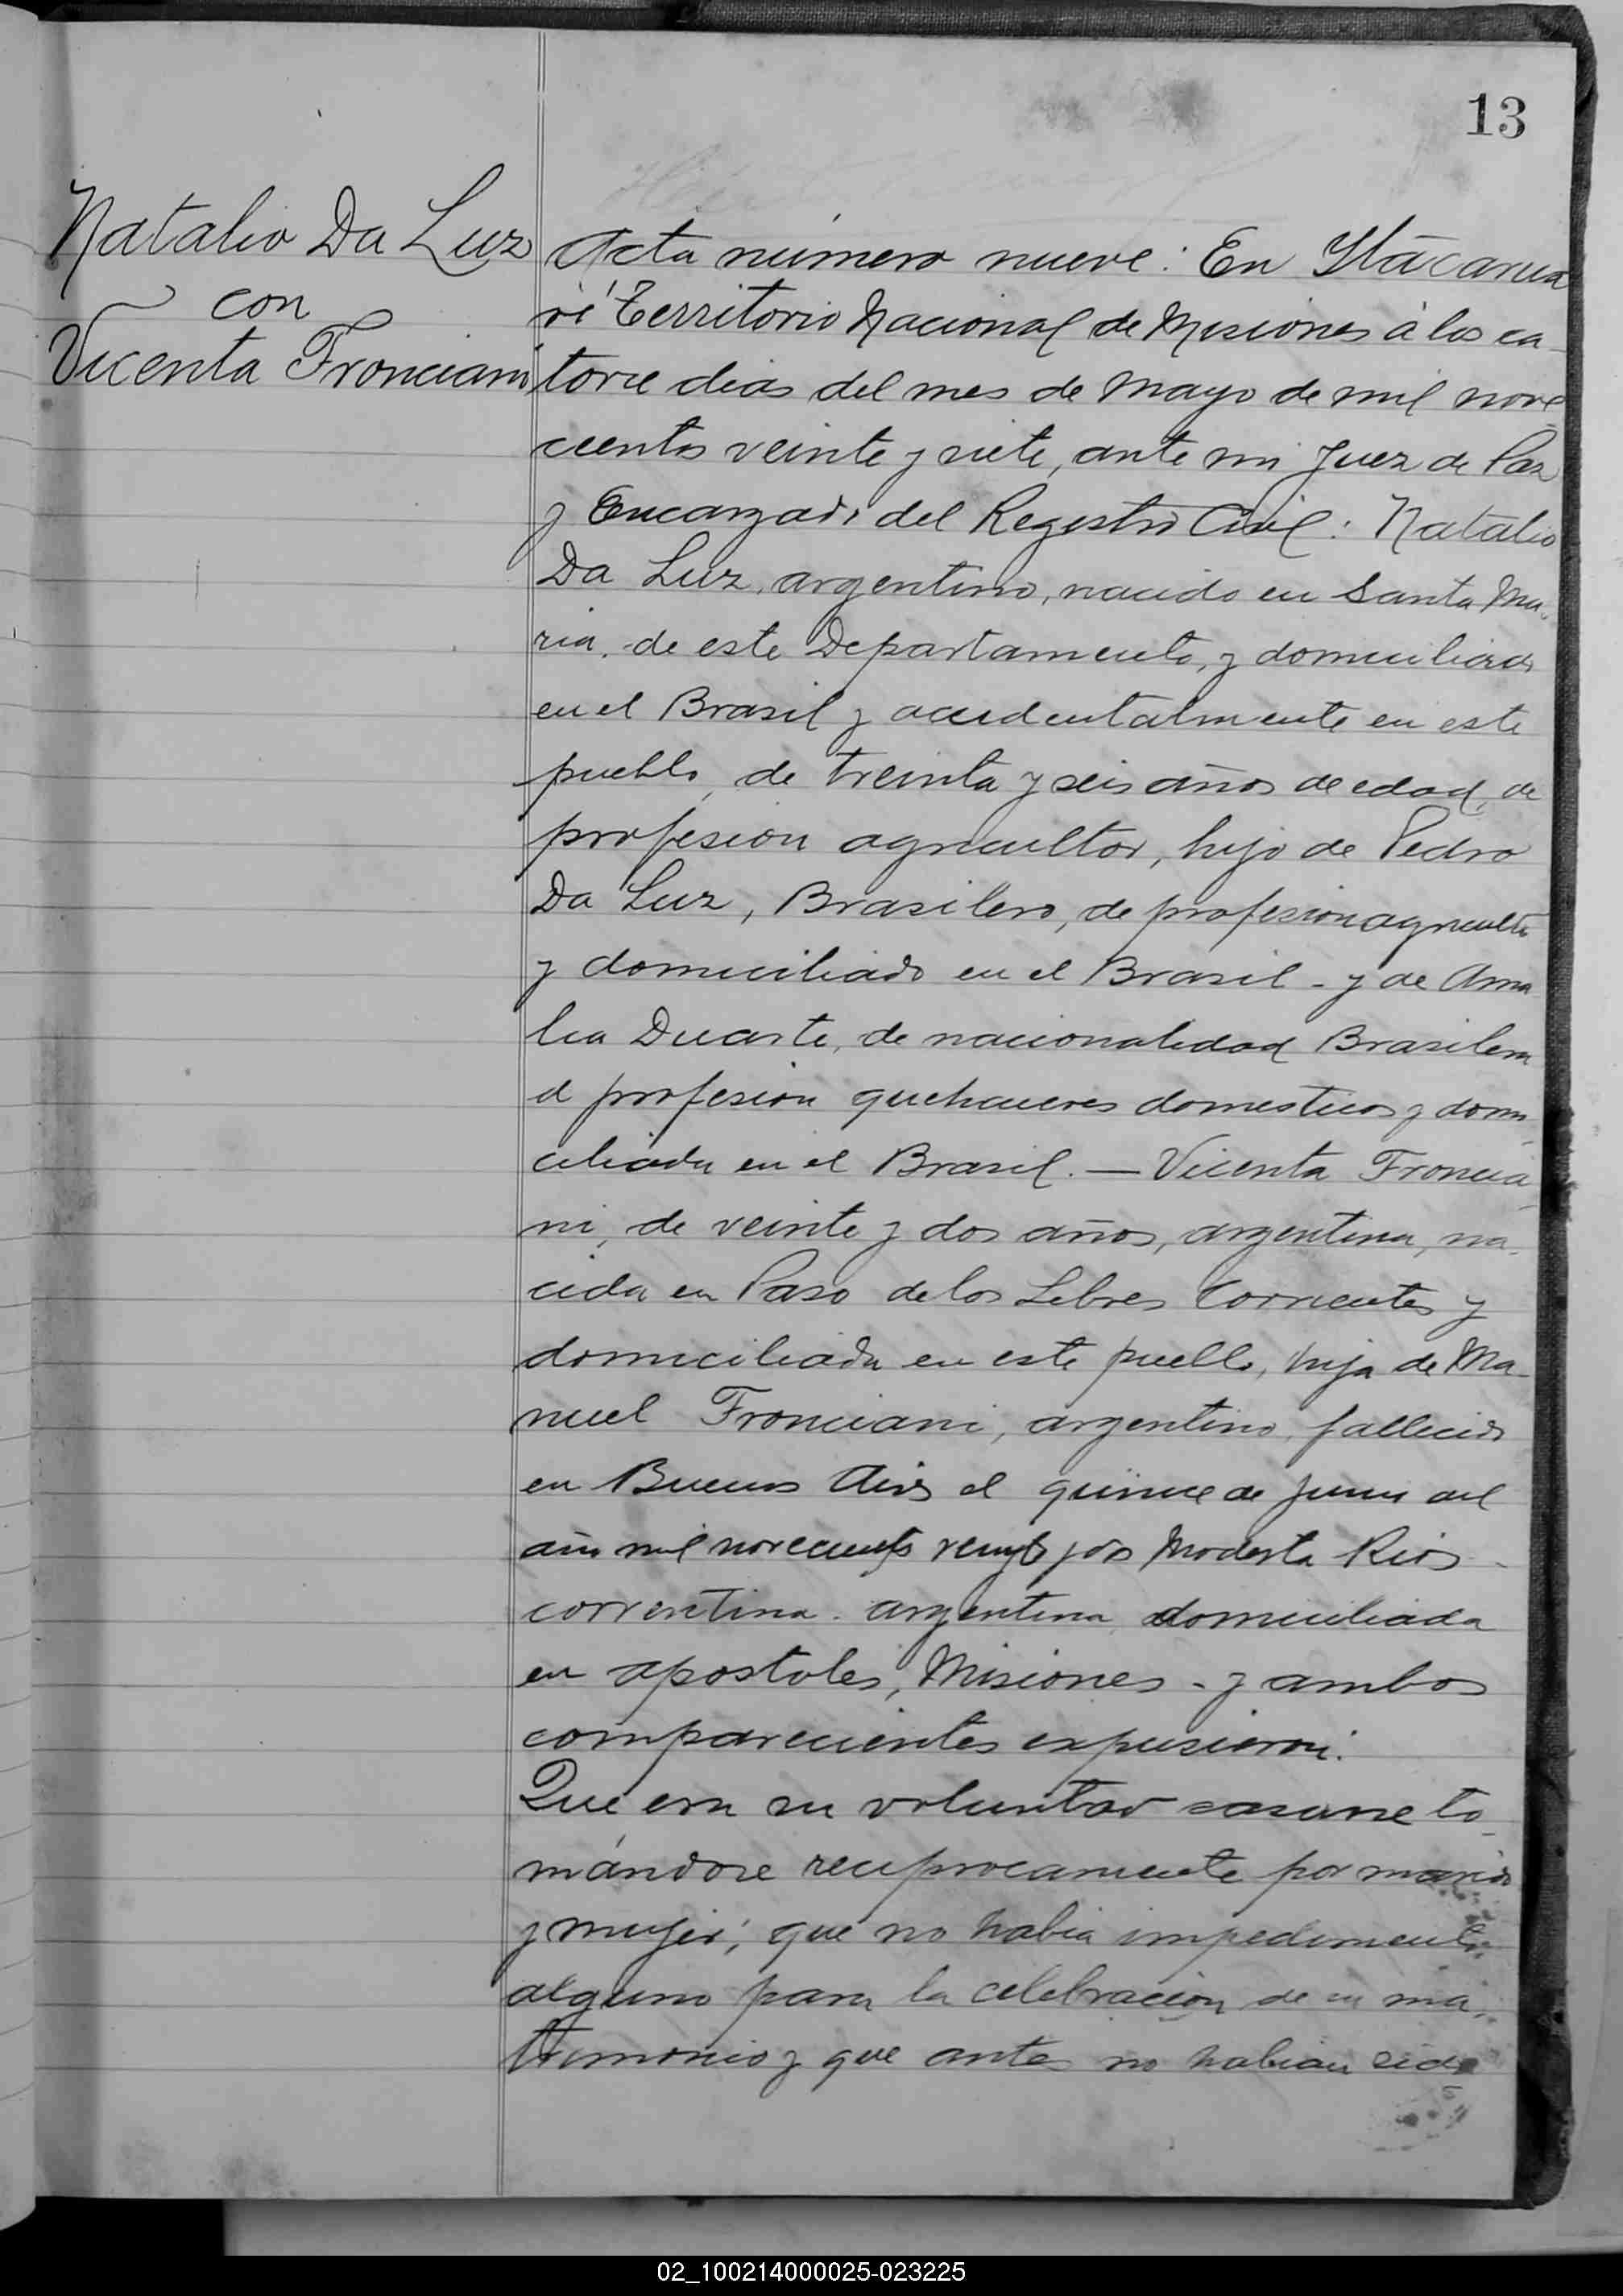 13
Natalio Da Luz
con
Vicenta Fronciani
Acta número nueve: En Itacarua
ré Territorio Nacional de Misiones á los ca
torce dias del mes de Mayo de mil nove
cientos veinte y siete, ante mi Juez de Paz
y Encargado del Registro Civil: Natalio
Da Luz, argentino, nacido en Santa Ma
ria, de este Departamento, y domiciliado
en el Brasil y accidentalmente en este
pueblo, de treinta y seis años de edad, de
profesion agricultor, hijo de Pedro
Da Luz, Brasilero, de profesion agricultor
y domiciliado en el Brasil - y de Ama
lia Duarte, de nacionalidad Brasilera
d profesion quehaceres domesticos y domi
ciliada en el Brasil. — Vicenta Froncia
ni, de veinte y dos años, argentina, na
cida en Paso de los Libres Corrientes y
domiciliada en este pueblo, hija de Ma-
nuel Fronciani, argentino, fallecido
en Buenos Aires el quince de Junio del
año mil novecientos veinte y dos Modesta Rios
correntina. argentina domiciliada
en apostoles, Misiones - y ambos
comparecientes expusieron:
Que era su voluntad casarse to
mándose reciprocamente por marido
y mujer; que no habia impedimento
alguno para la celebracion de su ma
trimonio y que antes no habian sido
02_100214000025-023225